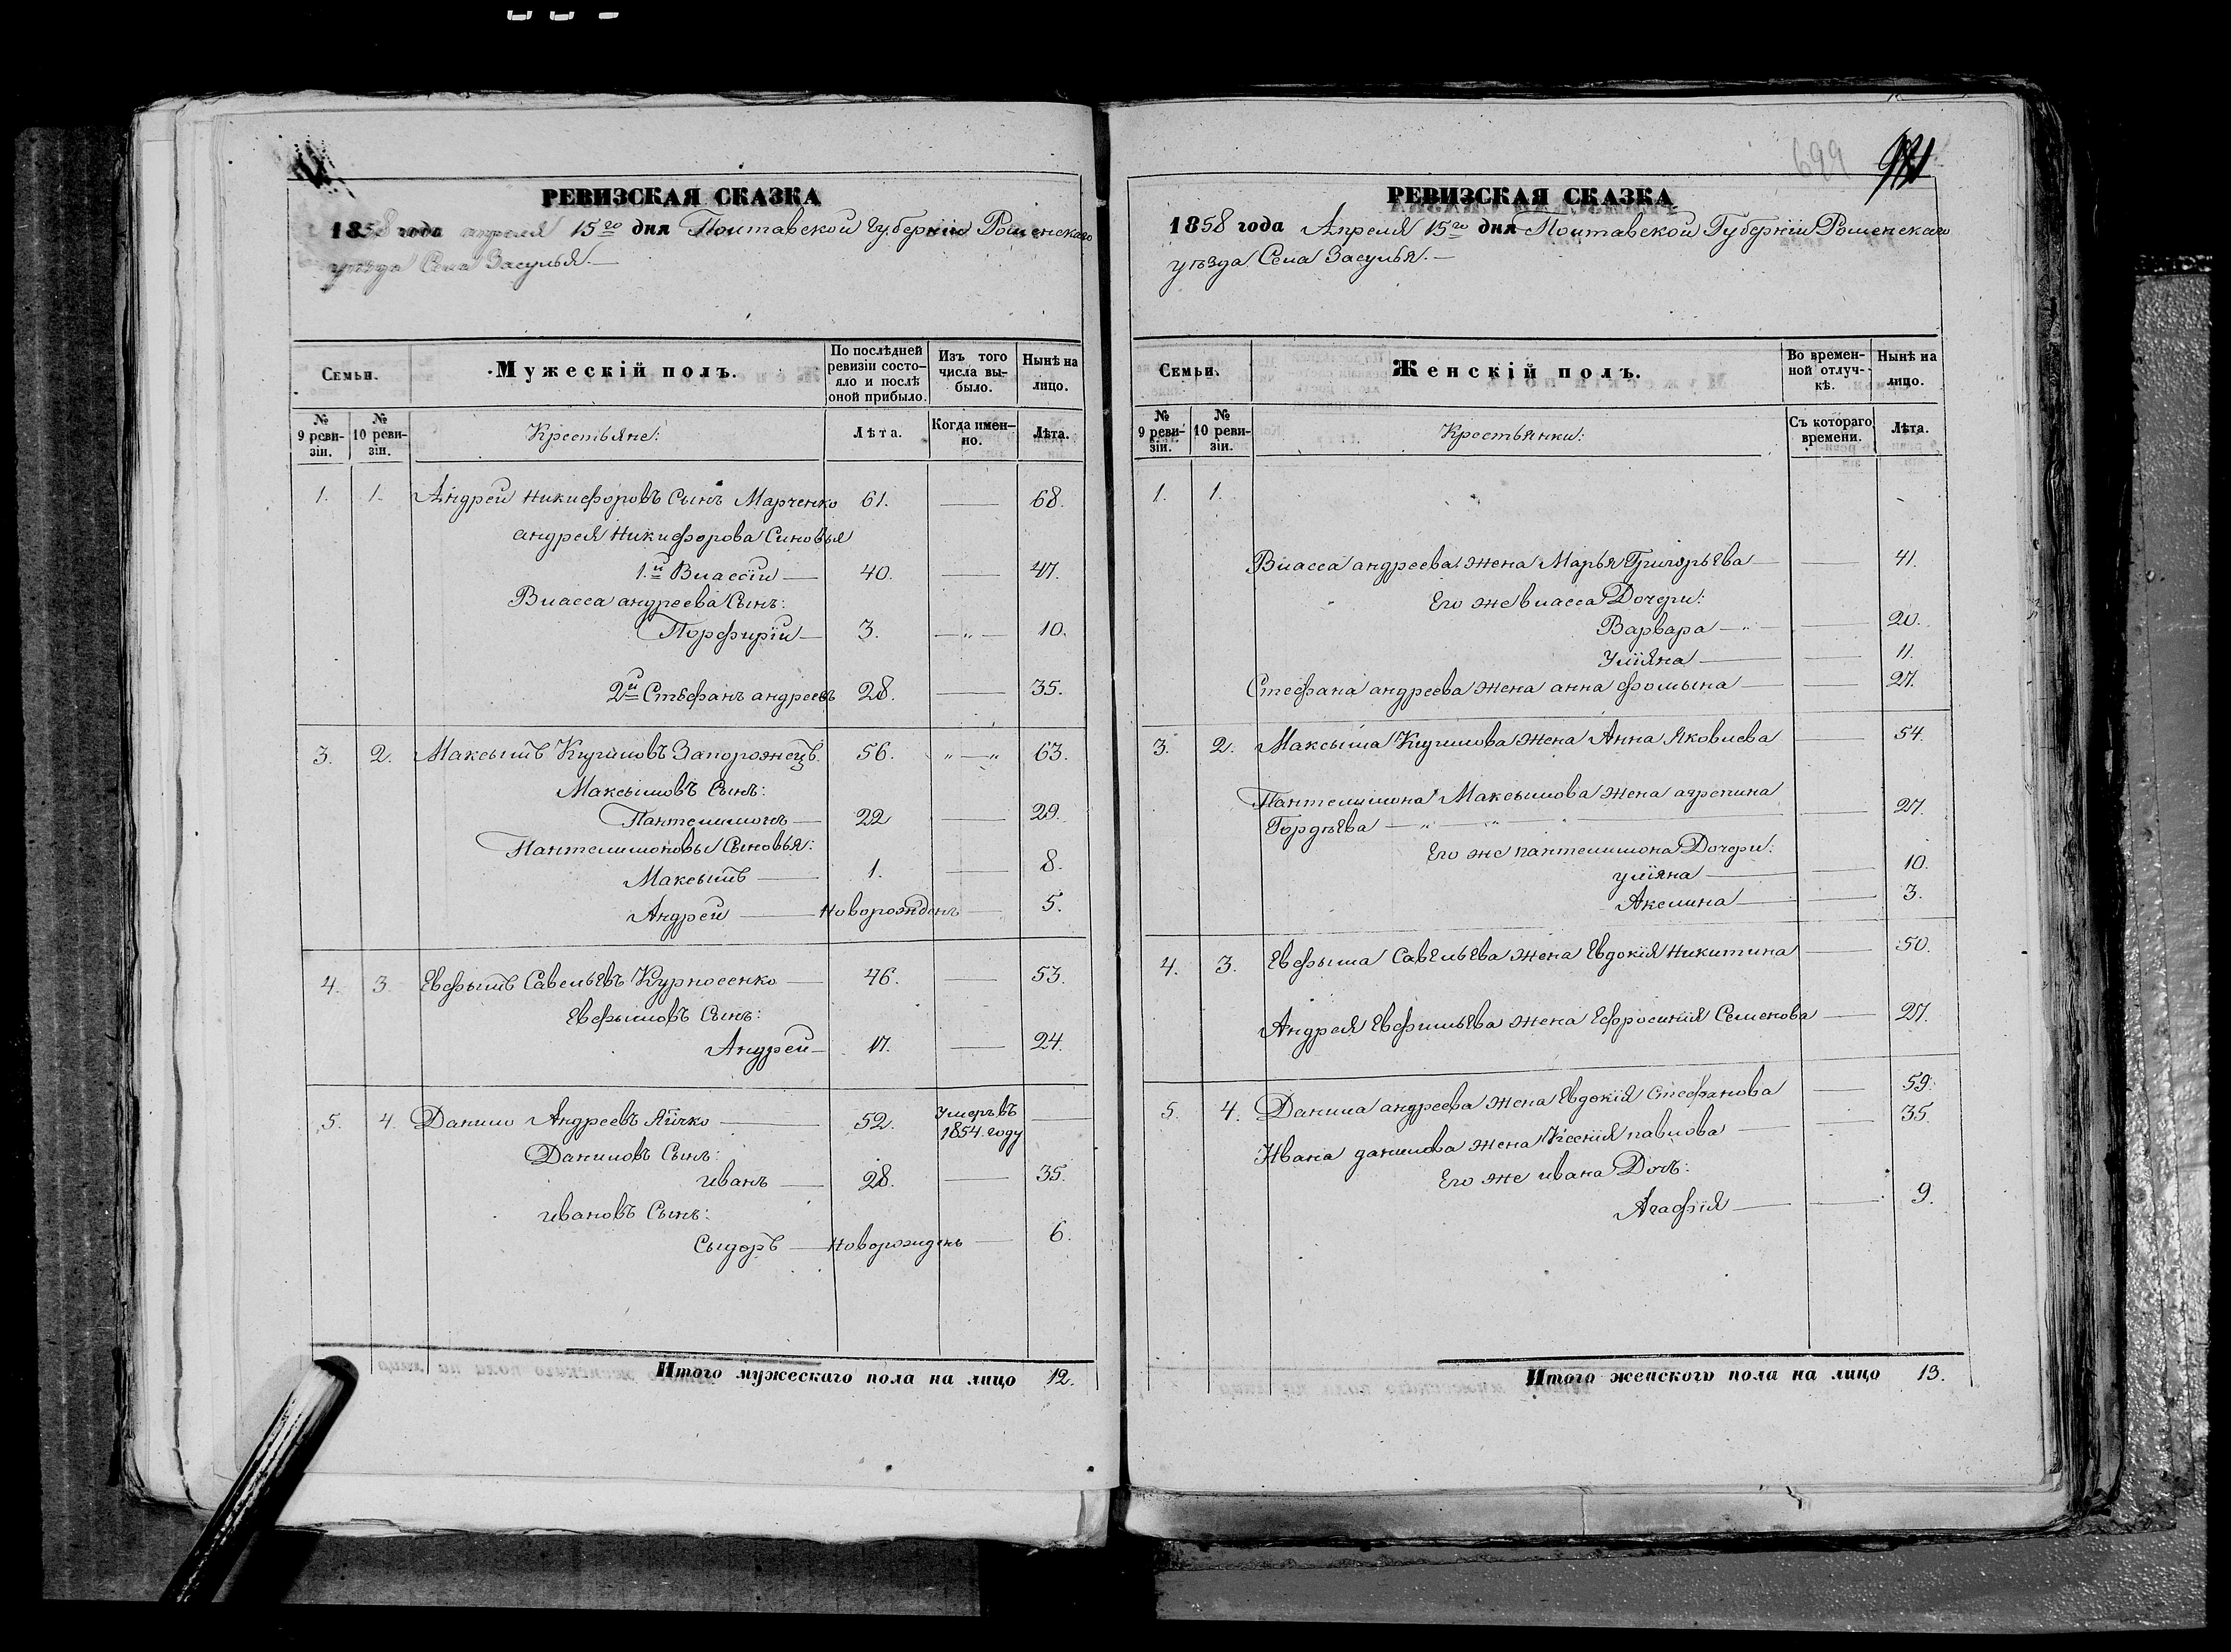 РЕВИЗСКАЯ СКАЗКА
1858 года апреля 15го дня Полтавской губерніи Роменскаго
уѣзда Села Засулья.
Семьи.
Мужескій полъ.
По послѣдней ревизіи состо-
яло и послѣ оной прибыло.
Изъ того числа вы-
было.
Нынѣ на лицо.
№ 9 реви-
зіи.
№ 10 реви-
зіи.
Крестьяне:
Лѣта.
Когда имен-
но.
Лѣта.
1. 1. Андрей Никифоровъ Сынъ Марченко 61. — 68.
андрея Никифорова Сыновья
1.й Власій — 40. — 47.
Власа андреева Сынъ:
Порфирій — 3. — „ — 10.
2й Стефанъ андреевъ 28. — 35.
3. 2. Максымъ Кириловъ Запорожецъ. 56. „ — „ 63.
Максымовъ Сынъ:
Пантелимонъ — 22 — 29.
Пантелимоновы Сыновья:
Максымъ — 1. — 8.
Андрей — Новорожденъ — 5.
4. 3. Евфымъ Савельевъ Курносенко — 46. — 53.
Евфымовъ Сынъ:
Андрей — 17. — 24.
5. 4. Данило Андреевъ Яичко — 52. Умеръ въ 1854. году —
Даниловъ Сынъ:
иванъ — 28. — 35.
ивановъ Сынъ:
Сыдоръ — Новорожденъ — 6.
Итого мужескаго пола на лицо 12.
699
РЕВИЗСКАЯ СКАЗКА
1858 года Апреля 15го дня Полтавской Губерніи Роменскаго
уѣзда Села Засулья. —
Семьи.
Женскій полъ.
Во времен-
ной отлуч-
кѣ.
Нынѣ на лицо.
№ 9 реви-
зіи.
№ 10 реви-
зіи.
Крестьянки:
Съ котораго времени.
Лѣта.
1. 1.
Власса андреева жена Марья Григорьева — — 41.
Его же власса Дочери:
Варвара — „ — 20.
Уліяна — — 11.
Стефана андреева жена анна фомына — — 27.
3. 2. Максыма Кирилова жена Анна Яковлева — 54.
Пантелимона Максымова жена агрепина
Гордѣева — „ — „ — 27.
Его же пантелимона Дочери:
уліяна — — 10.
Акелина — — 3.
4. 3. Евфыма Савельева жена Евдокія Никитина — 50.
Андрея Евфимьева жена Ефросинія Семенова — 27.
5. 4. Данила андреева жена Евдокія Стефанова — 59.
Ивана данилова жена Ксенія павлова — — 35.
Его же ивана Дочъ:
Агафія — — 9.
Итого женского пола на лицо 13.